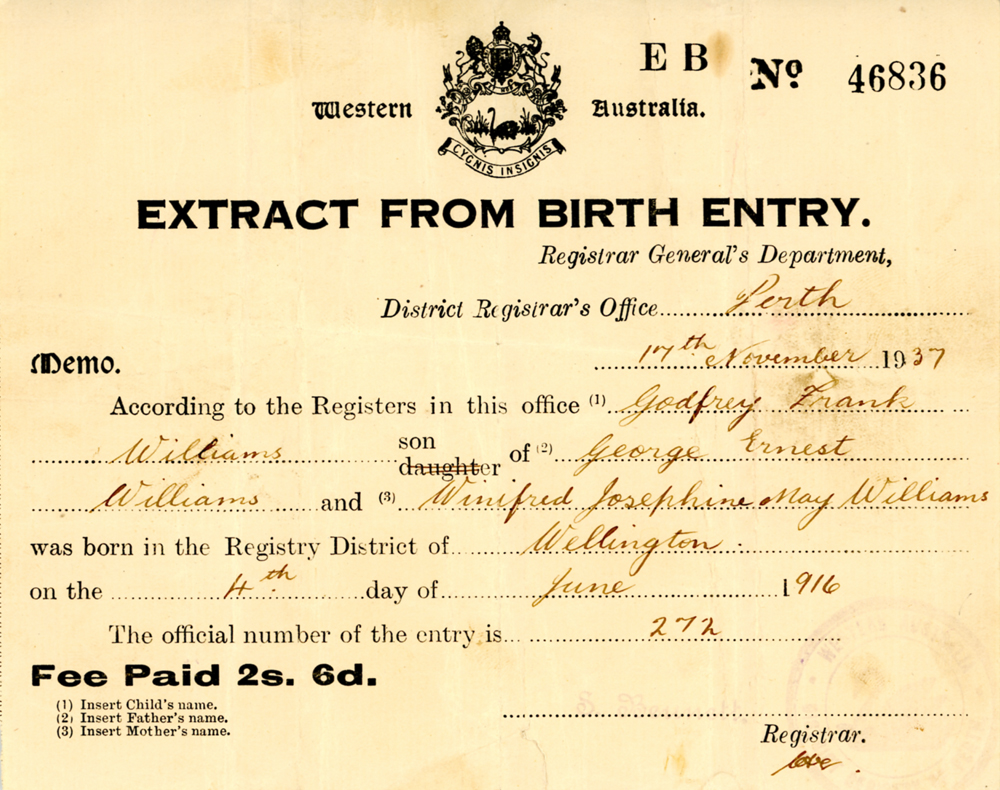 E B Nº 46836
Western Australia.
CYGNIS INSIGNIS
EXTRACT FROM BIRTH ENTRY.
Registrar General's Department,
District Registrar's Office Perth
Memo. 17th November 1937
According to the Registers in this office (1) Godfrey Frank
Williams son daughter of (2) George Ernest
Williams and (3) Winifred Josephine May Williams
was born in the Registry District of Wellington.
on the 4th day of June 1916
The official number of the entry is 272
Fee Paid 2s. 6d.
(1) Insert Child's name.
(2) Insert Father's name.
(3) Insert Mother's name.
Registrar.